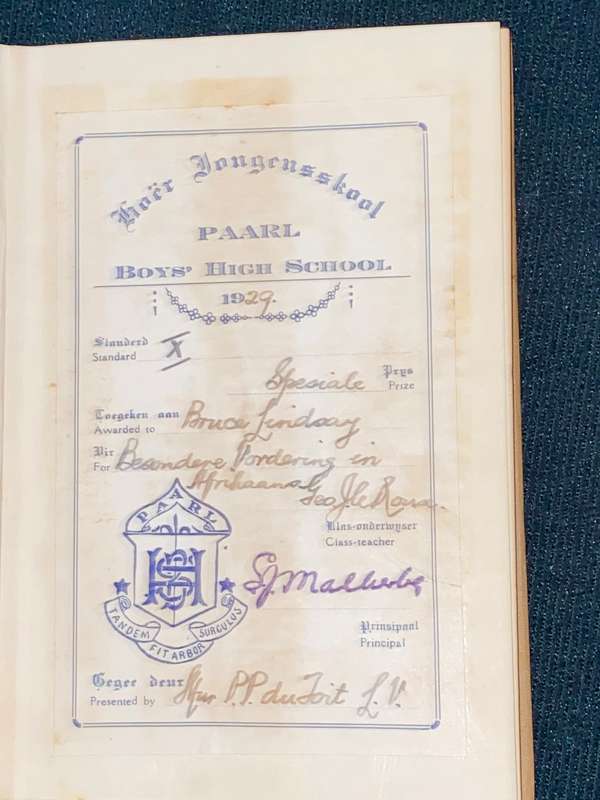 Hoër Jongensskool
PAARL
BOYS' HIGH SCHOOL
1929.
Standerd X
Standard
Spesiale Prys
Prize
Toegeken aan Bruce Lindsay
Awarded to
Vir Besondere Vordering in
For
Afrikaans
Geo J. le Roux.
Klas-onderwyser
Class-teacher
PAARL
BHS
TANDEM FIT ARBOR SURCULUS
S J Malherbe
Prinsipaal
Principal
Gegee deur P.P. du Toit L.V.
Presented by